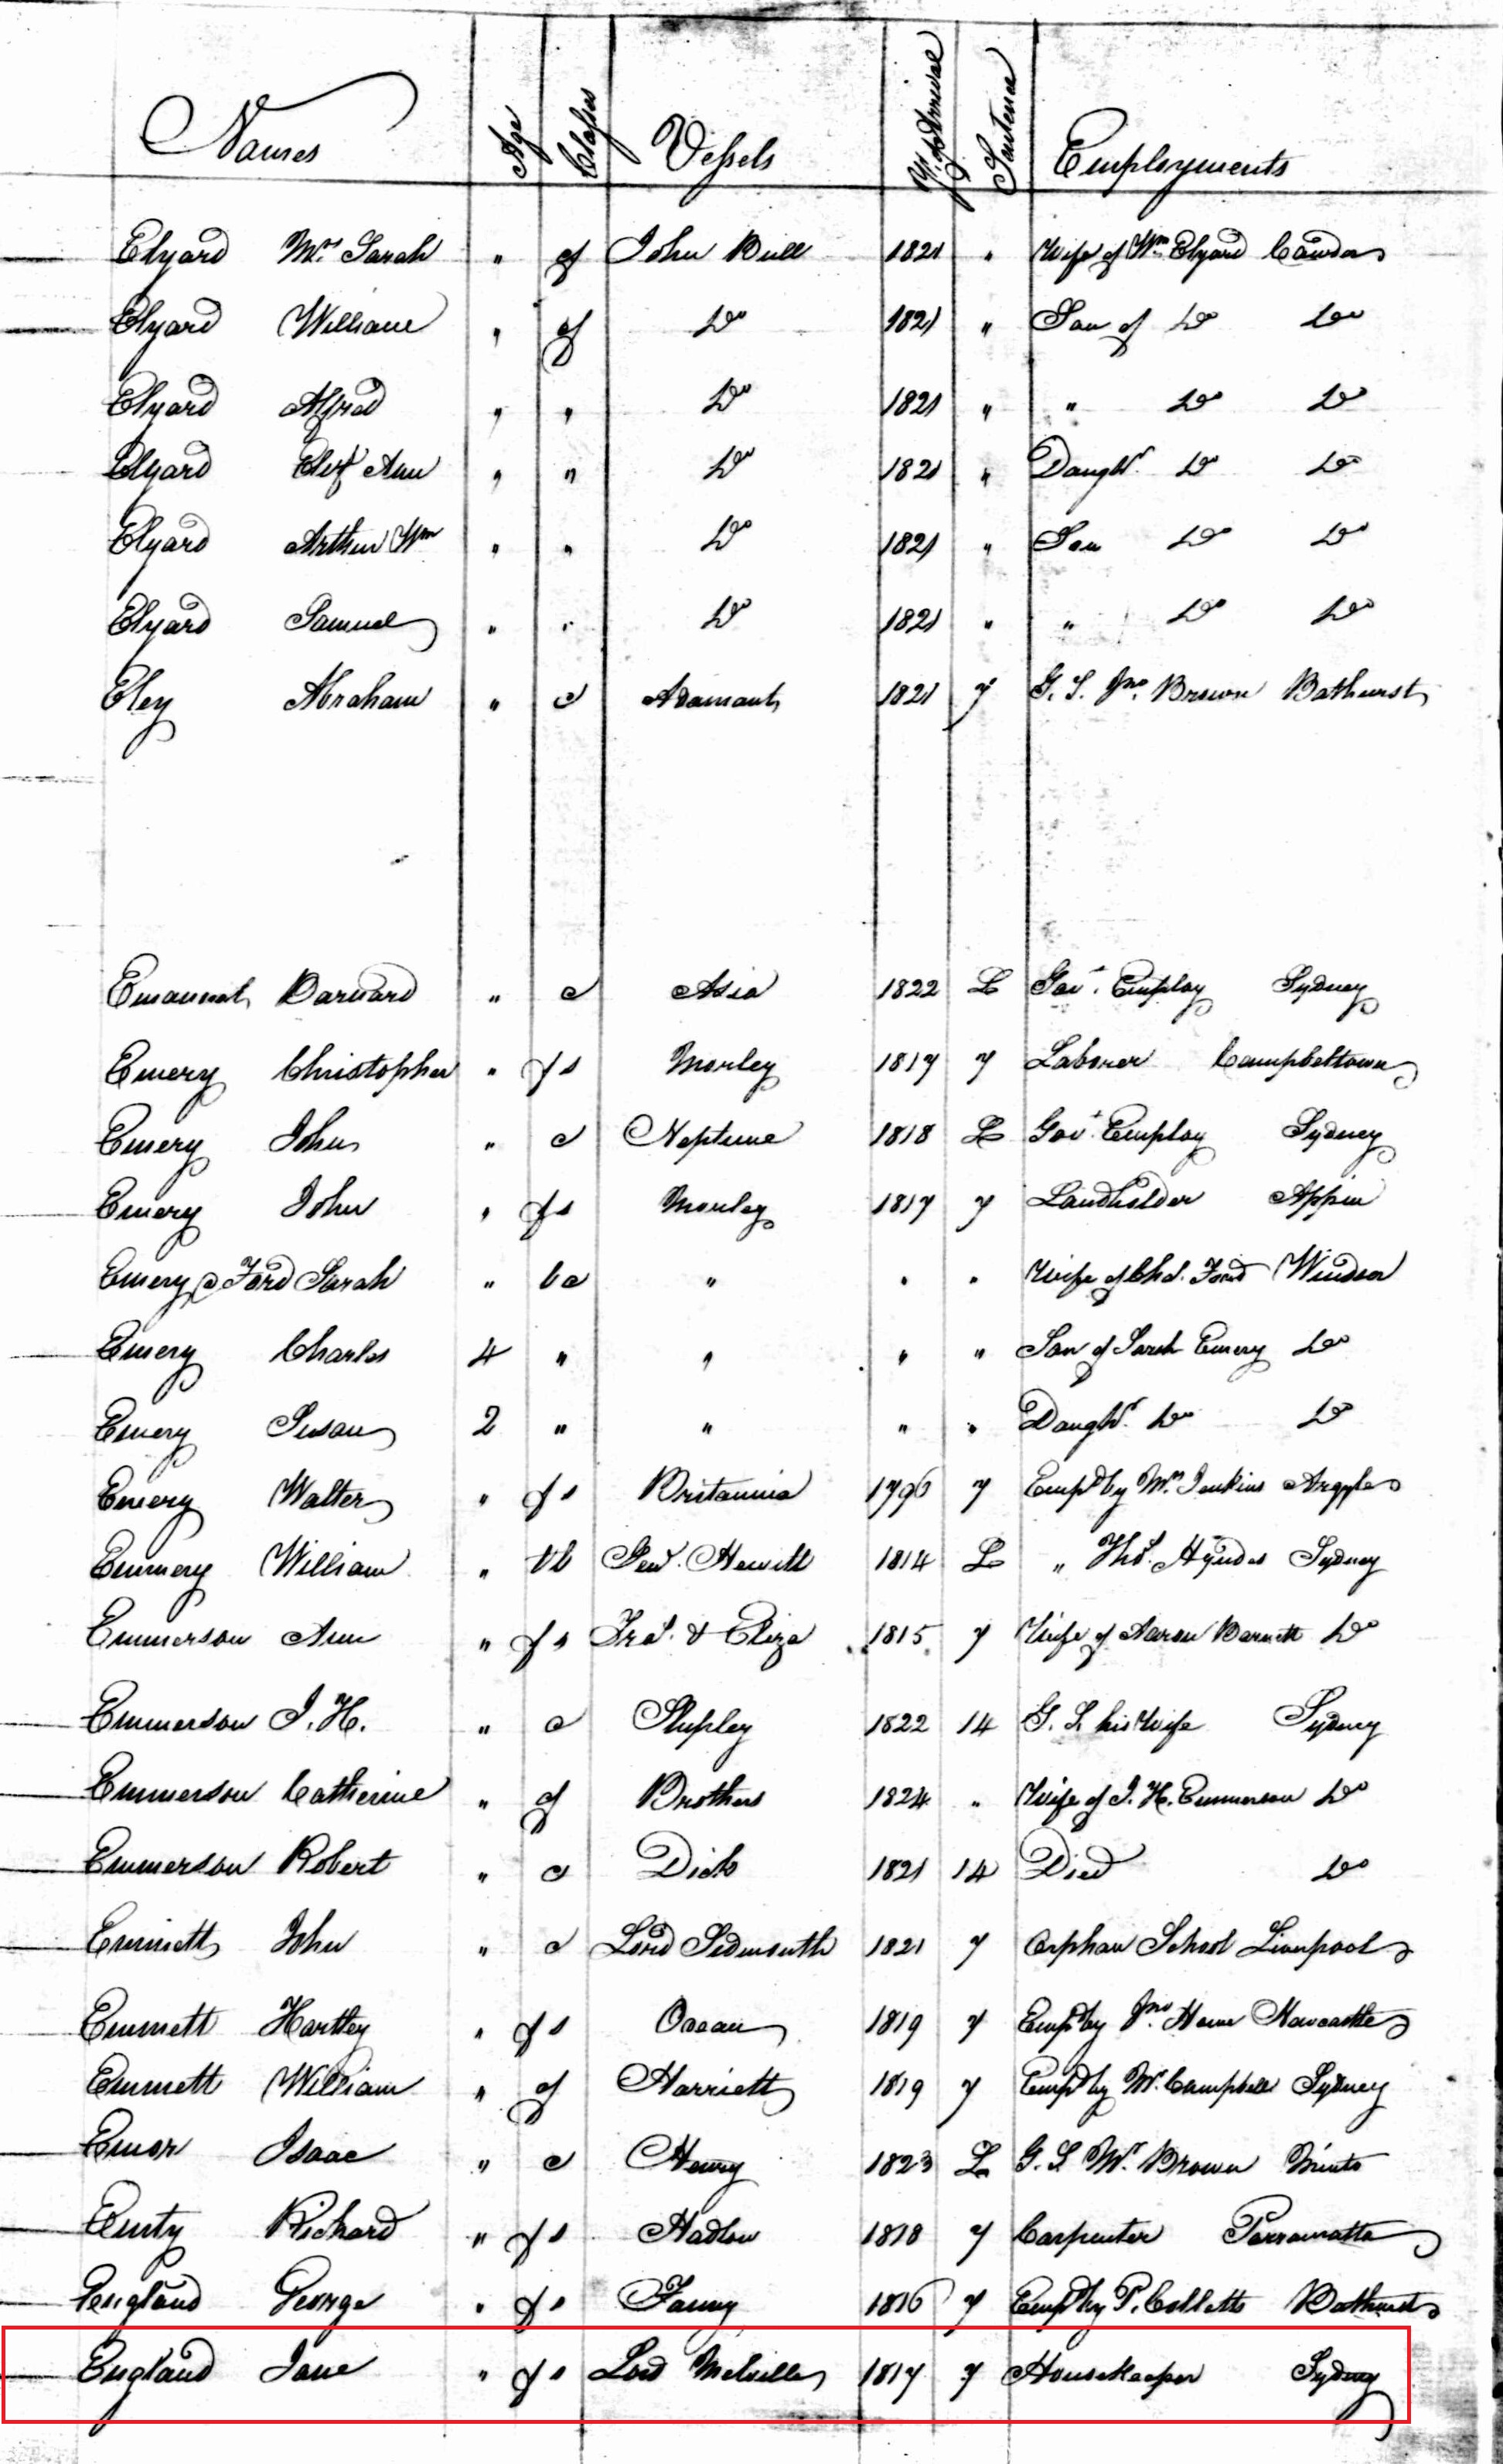 Names Age Classes Vessels Yr. of Arrival Sentence Employments
Elyard Mrs Sarah " cf John Bull 1821 " Wife of Wm Elyard Cawdor
Elyard William " cf Do 1821 " Son of Do Do
Elyard Alfred " " Do 1821 " " Do Do
Elyard Elizt Ann " " Do 1821 " Daughtr. Do Do
Elyard Arthur Wm " " Do 1821 " Son Do Do
Elyard Samuel " " Do 1821 " " Do Do
Eley Abraham " c Adamant 1821 7 G. S. Jno. Brown Bathurst
Emanuel Barnard " c Asia 1822 L Govt. Employ Sydney
Emery Christopher " fs Morley 1817 7 Laborer Campbeltown
Emery John " c Neptune 1818 L Govt. Employ Sydney
Emery John " fs Morley 1817 7 Landholder Appin
Emery @ Ford Sarah " bc " " " Wife of Chs. Ford Windsor
Emery Charles 4 " " " " Son of Sarah Emery Do
Emery Susan 2 " " " " Daughtr. Do Do
Emery Walter " fs Britannia 1796 7 Empd by Mr. Jenkins Argyle
Emmery William " tl Genl. Hewitt 1814 L " Thos. Hyndes Sydney
Emmerson Ann " fs Frd. & Eliza 1815 7 Wife of Aaron Barnett Do
Emmerson J. H. " c Shipley 1822 14 G. S. his Wife Sydney
Emmerson Catherine " cf Brothers 1824 " Wife of J. H. Emmerson Do
Emmerson Robert " c Dick 1821 14 Died Do
Emmett John " c Lord Sidmouth 1821 7 Orphan School Liverpool
Emmett Hartley " fs Ocean 1819 7 Empd by Jno. Howe Newcastle
Emmett William " cf Harriett 1819 7 Empd by Mr. Campbell Sydney
Emor Isaac " c Henry 1823 L G. S. Mr. Brown Minto
Emty Richard " fs Hadlow 1818 7 Carpenter Parramatta
England George " fs Fanny 1816 7 Empd by P. Colletts Bathurst
England Jane " fs Lord Melville 1817 7 Housekeeper Sydney